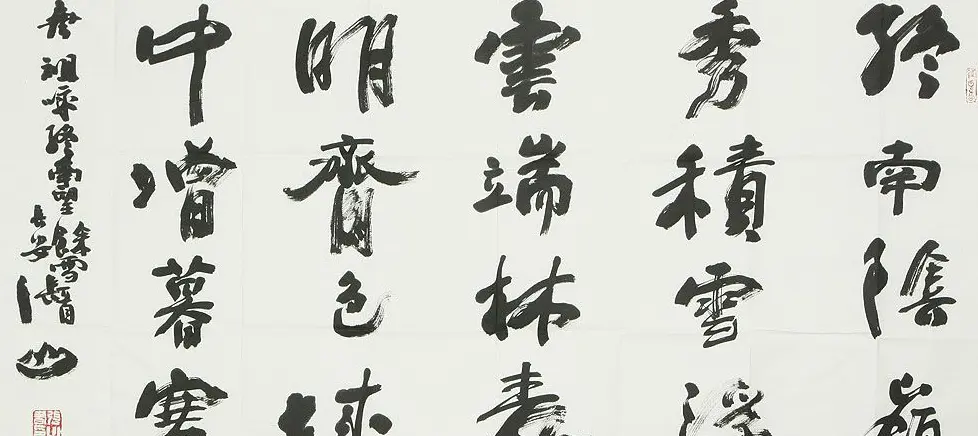 終南陰嶺
秀積雪浮
雲端林表
明齊色城
中增暮寒
唐祖咏終南望餘雪
長安
山